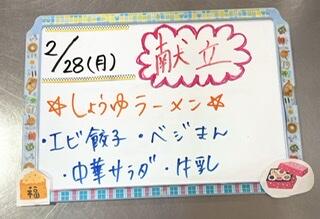 2/28(月)
献立
☆しょうゆラーメン☆
・エビ餃子・ベジまん
・中華サラダ・牛乳
福